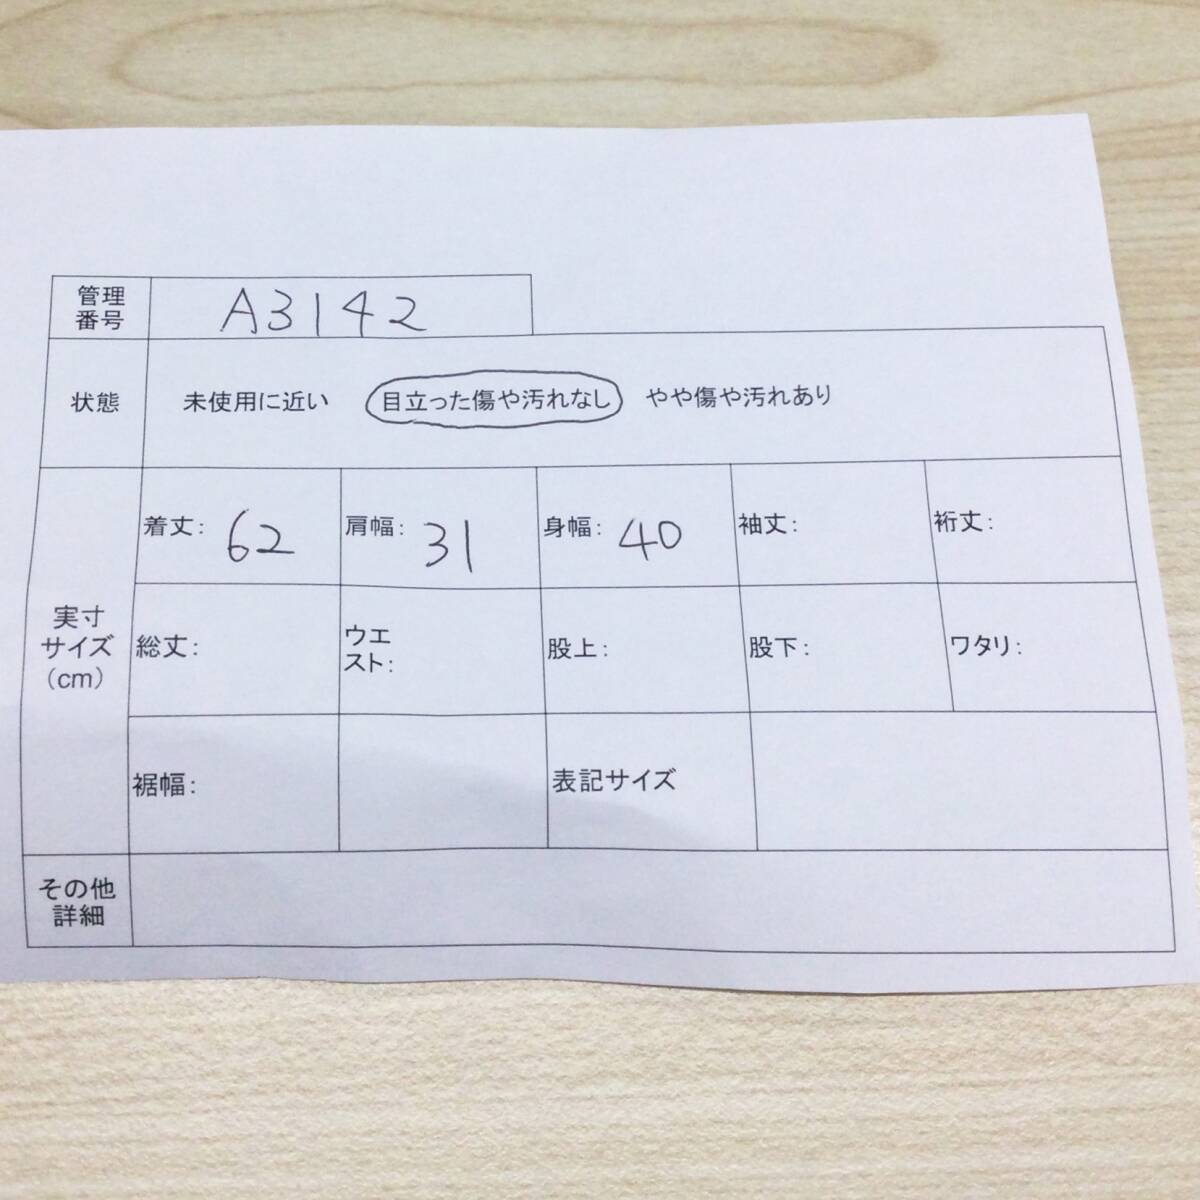 管理
番号
A3142
状態
未使用に近い 目立った傷や汚れなし やや傷や汚れあり
実寸
サイズ
(cm)
着丈: 62
肩幅: 31
身幅: 40
袖丈:
裄丈:
総丈:
ウエ
スト:
股上:
股下:
ワタリ:
裾幅:
表記サイズ
その他
詳細